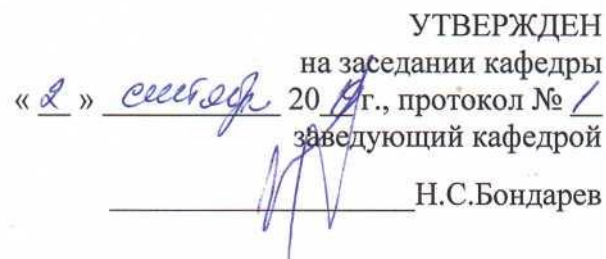 УТВЕРЖДЕН
на заседании кафедры
« 2 » сентябр 20 г., протокол № 1
заведующий кафедрой
Н.С.Бондарев